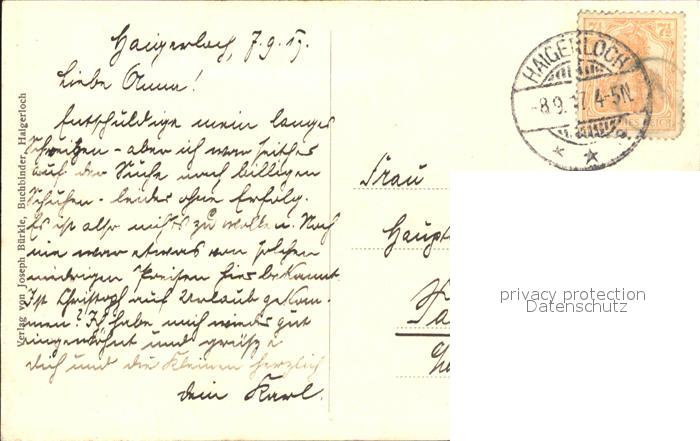 Haigerloch, 7.9.17.
Liebe Anna!
Entschuldige mein langes
Schweigen - aber ich war seither
auf der Suche nach billigen
Schuhen - leider ohne Erfolg.
Es ist also nichts zu wollen. Noch
nie war etwas von solchen
niedrigen Preisen hier bekannt
Ist Christoph auf Urlaub gekom-
men? Ich habe mich wieder gut
eingewöhnt und grüße
Dich und die Kleinen herzlich
dein Karl.
Verlag von Joseph Bürkle, Buchbinder, Haigerloch
7½ 7½
HAIGERLOCH
-8.9.17. 4-5N.
Frau
Haupt
privacy protection
Datenschutz